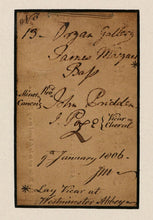 13. Organ Gallery
James Morgan
Bass
Minor Canon
Revd John Pridden
J. Page
Vicar Choral
7 January 1806.
* Lay Vicar at
Westminster Abbey